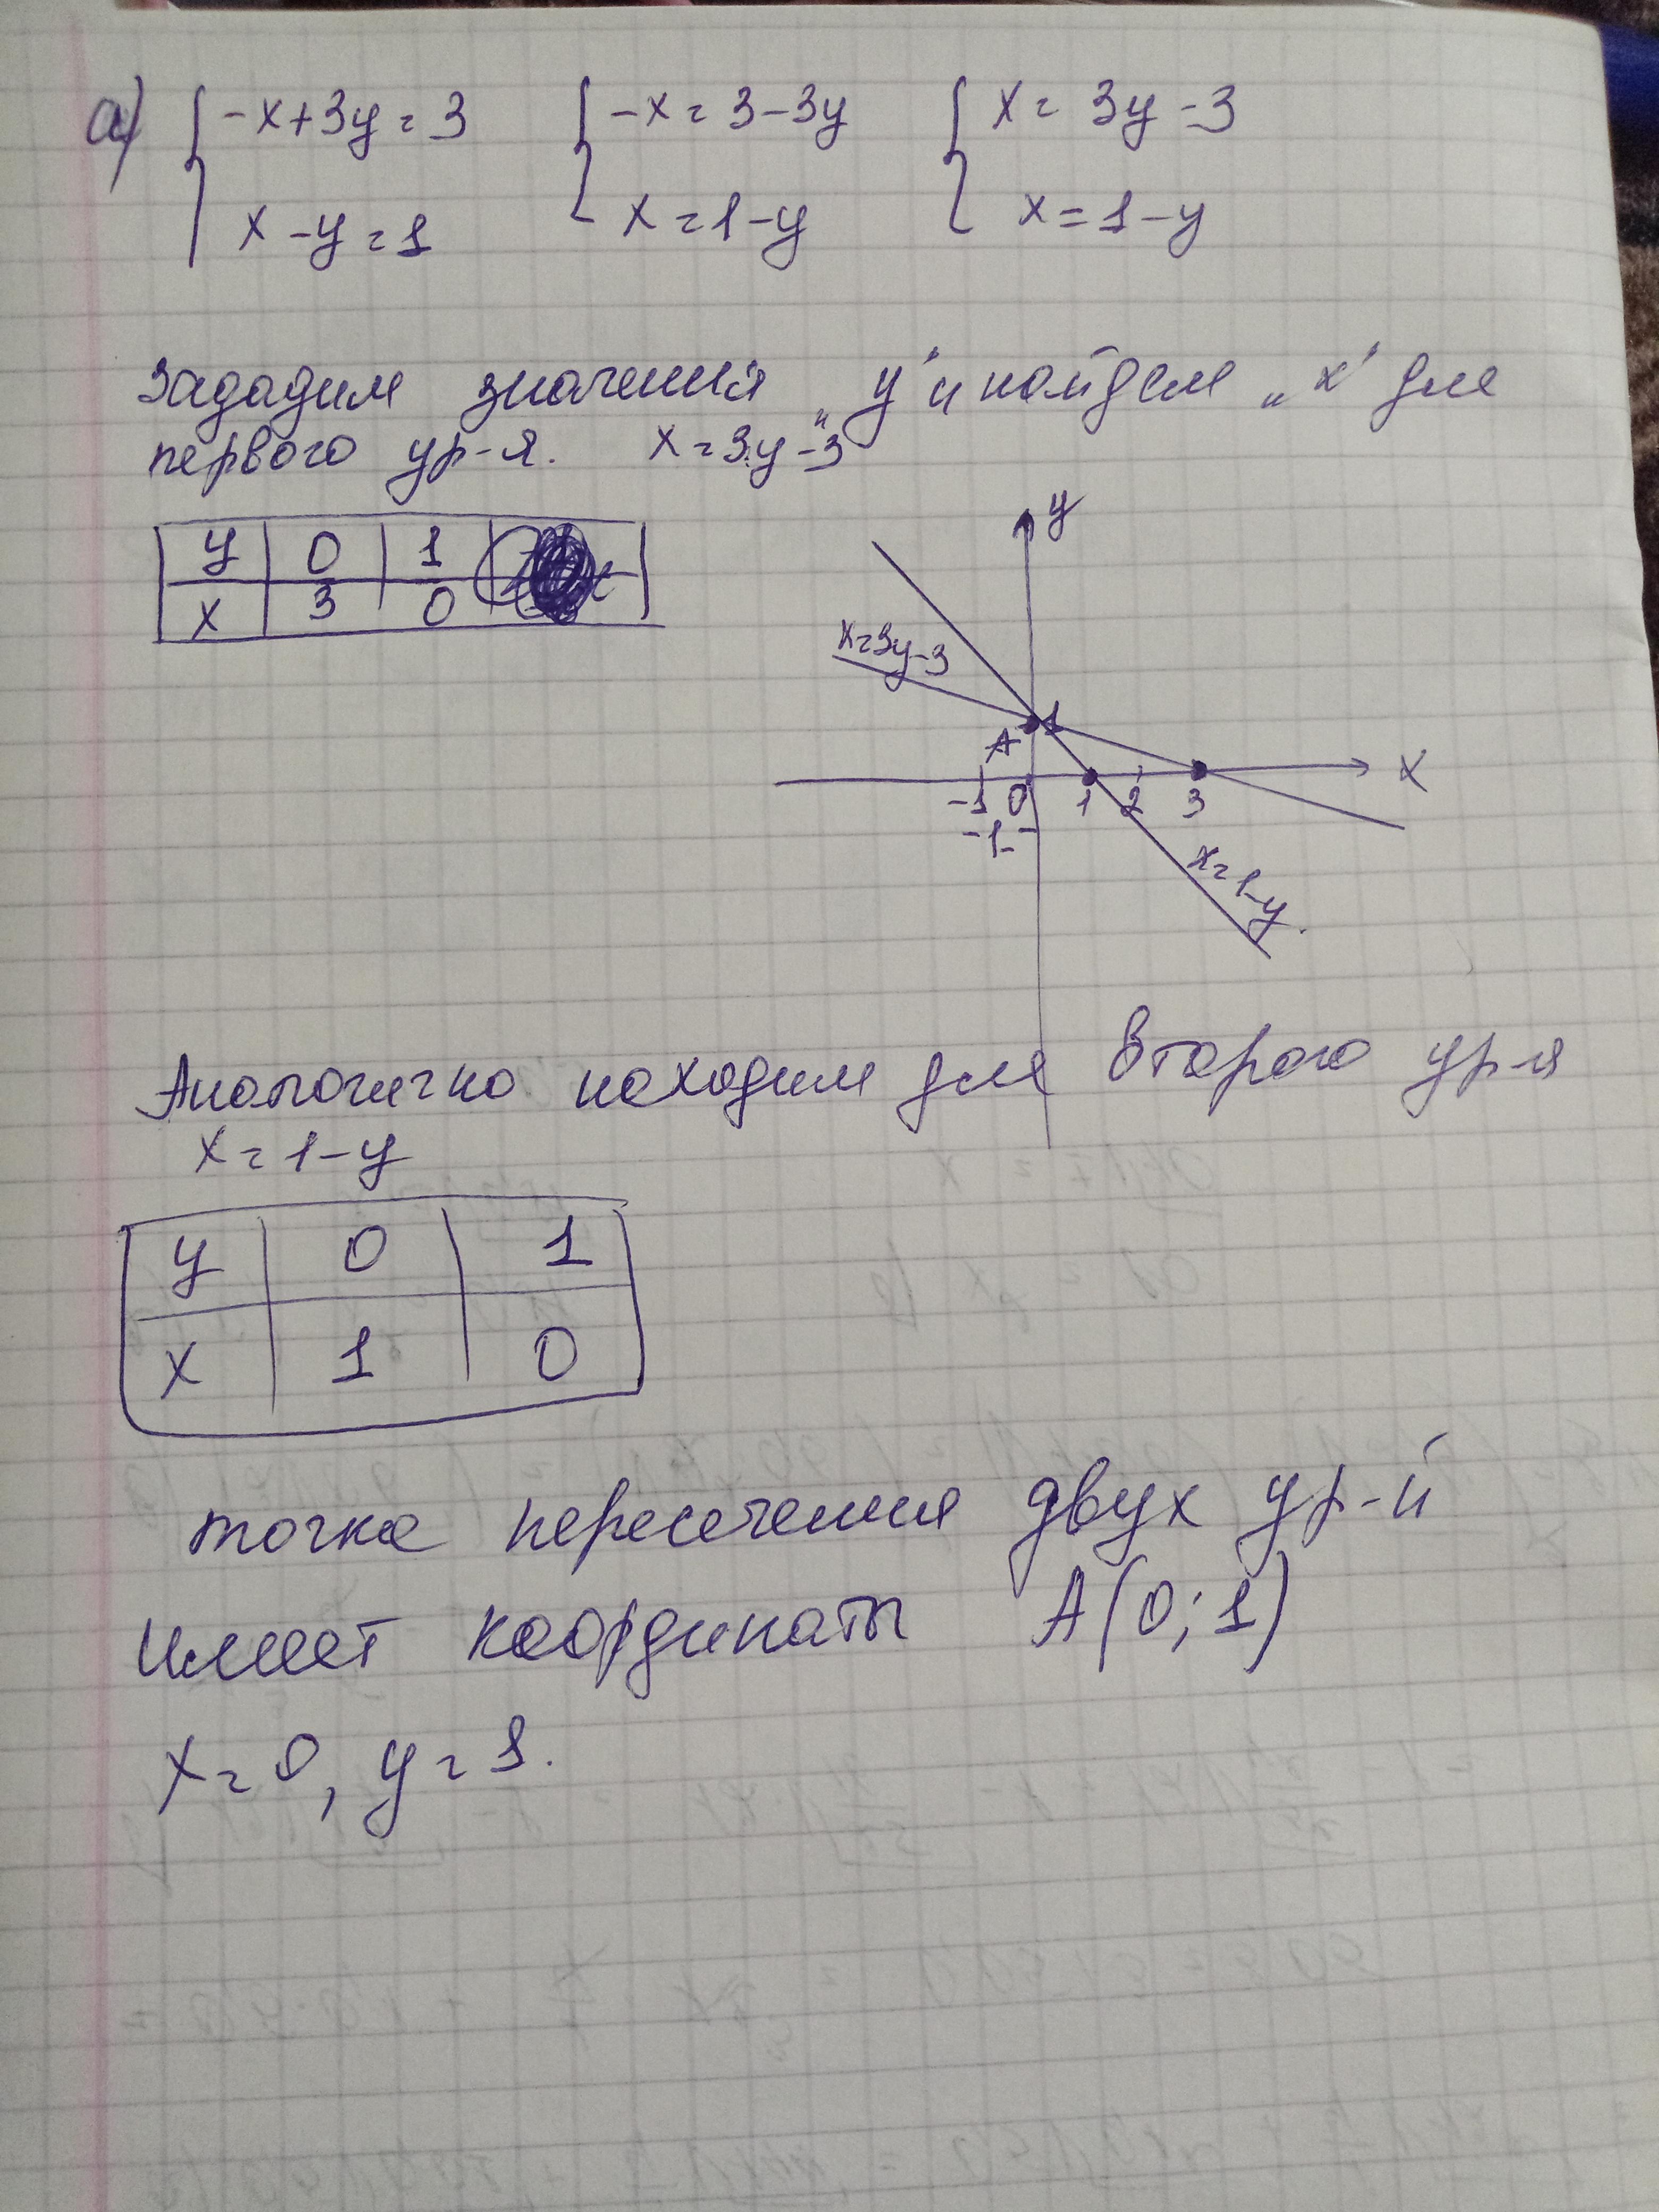 а) { -x+3y=3 { -x=3-3y { x=3y-3
x-y=1 x=1-y x=1-y
Зададим значения „y" и найдем „x" для
первого ур-я. x=3y-3
y 0 1
x 3 0
y
x=3y-3
A 1
-1 0 1 2 3 x
-1
x=1-y.
Аналогично находим для второго ур-я
x=1-y
y 0 1
x 1 0
точка пересечения двух ур-й
имеет координаты A(0;1)
x=0, y=1.